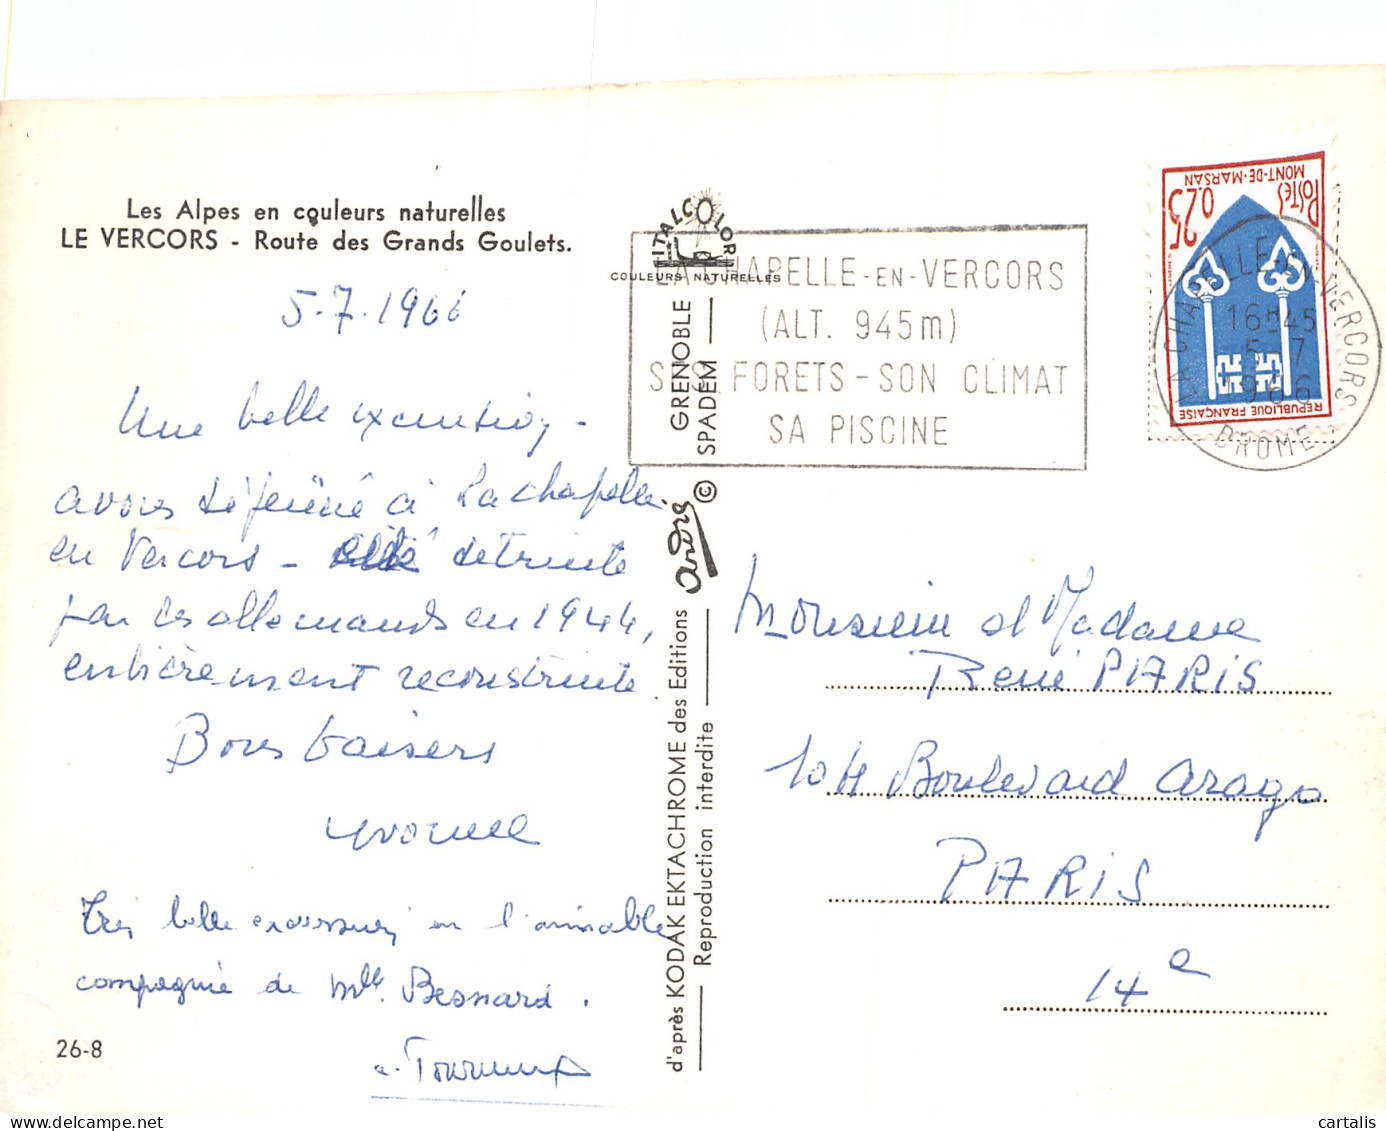 Les Alpes en couleurs naturelles
LE VERCORS - Route des Grands Goulets.
5-7-1966
Une belle excursion -
avons déjeûné à La chapelle
en Vercors - détruite
par les allemands en 1944,
entièrement reconstruite.
Bons baisers
Yvonne
Très belle excursion en l'aimable
compagnie de Mlle Besnard.
26-8
ITALCOLOR
COULEURS NATURELLES
GRENOBLE
SPADEM
©
andré
d'après KODAK EKTACHROME des Editions
Reproduction interdite
LA CHAPELLE-EN-VERCORS
(ALT. 945m)
SES FORETS - SON CLIMAT
SA PISCINE
POSTES
MONT-DE-MARSAN
0.25
REPUBLIQUE FRANÇAISE
LA CHAPELLE-EN-VERCORS
16H45
5-7
1966
DROME
Monsieur et Madame
René PARIS
104 Boulevard Arago
PARIS
14e
delcampe.net
cartalis